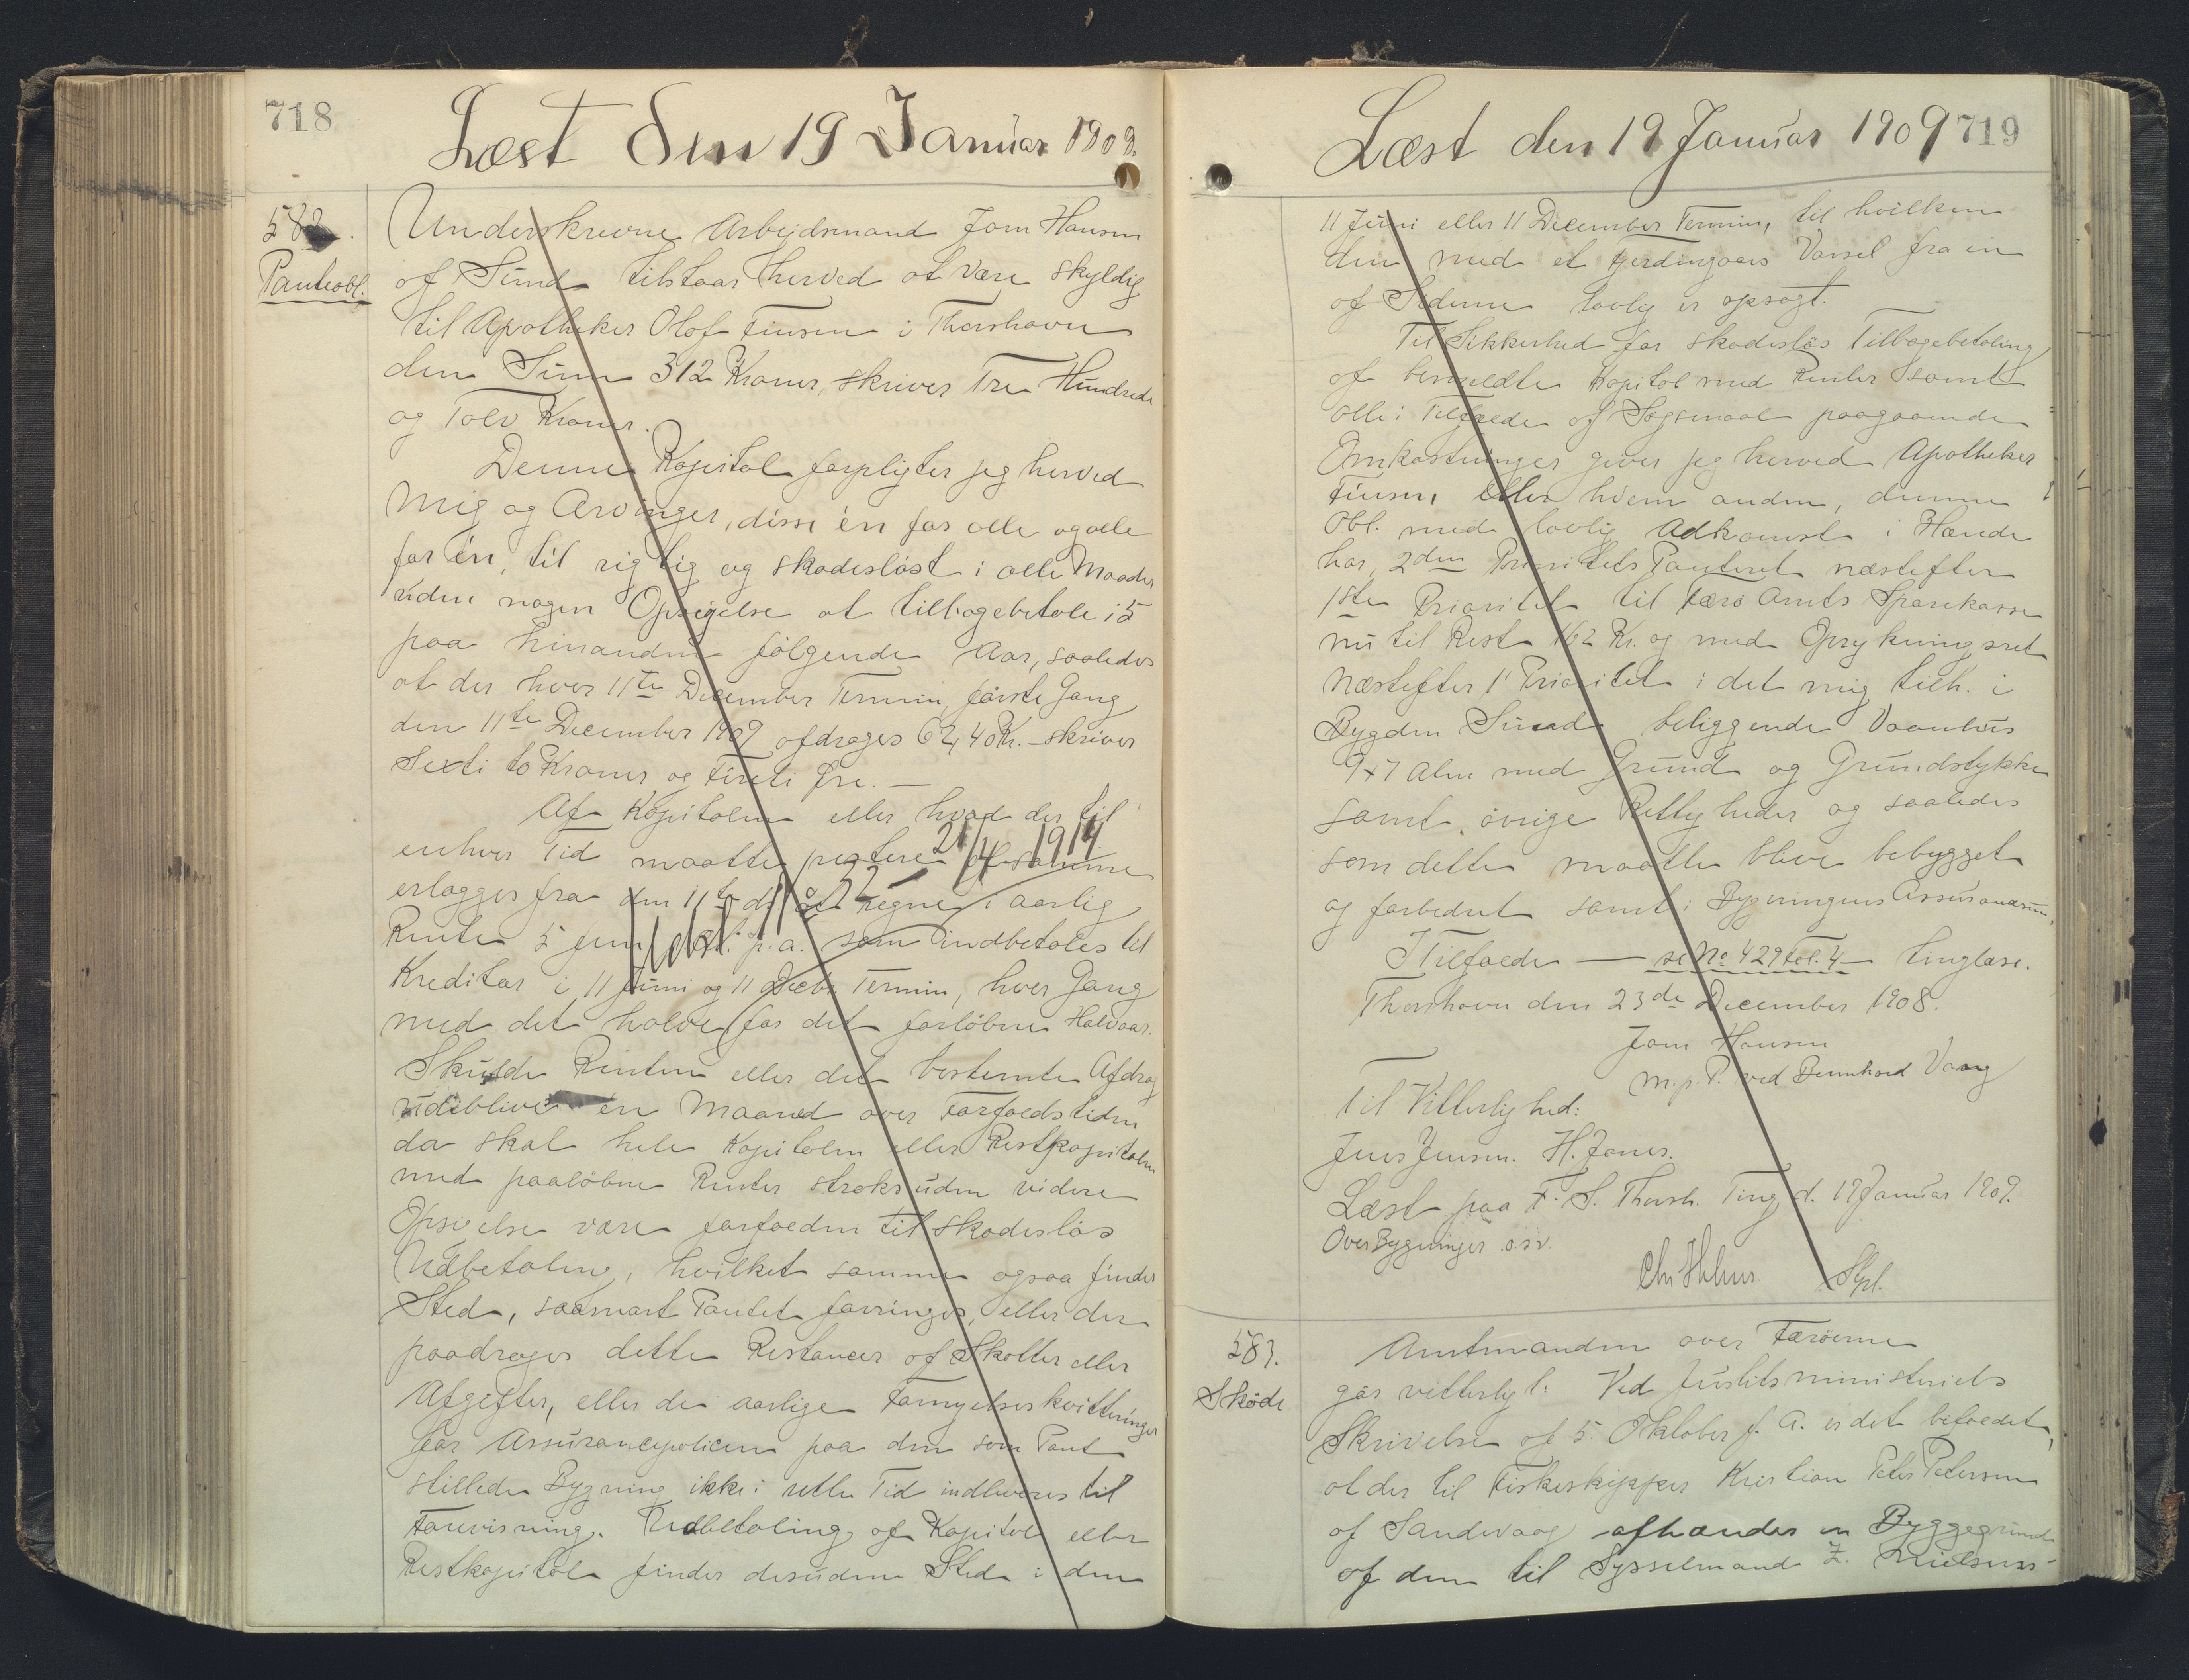 718
Læst den 19 Januar 1909.
582.
Panteobl.
Underskrevne Arbejdsmand Jom Hansen
af Sund tilstaar herved at være skyldig
til Apotheker Olof Finsen i Thorshavn
den Sum 312 Kroner, skriver Tre Hundrede
og Tolv Kroner.
Denne Kapital forpligter jeg herved
mig og Arvinger, disse én for alle og alle
for én, til rigtig og skadesløst i alle Maader
uden nogen Opsigelse at tilbagebetale i 5
paa hinanden følgende Aar, saaledes
at der hver 11te December Termin, første Gang
den 11te December 1909 afdrages 62,40 Kr. - skriver
Sexti to Kroner og Fireti Øre. -
Af Kapitalen eller hvad der til
enhver Tid maatte restere af samme
21/4 1914
erlægges fra den 11te ds at regne i aarlig
Rente 5 p.a. som indbetales til
Kreditor i 11 Juni og 11 Decbr Termin, hver Gang
med det halve for det forløbne Halvaar.
Skulde Renten eller det bestemte Afdrag
udeblive en Maaned over Forfaldstiden
da skal hele Kapitalen eller Restkapitalen
med paaløbne Renter straks uden videre
Opsigelse være forfalden til skadesløs
Udbetaling, hvilket samme ogsaa finder
Sted, saasnart Pantet forringes, eller der
paadrages dette Restancer af Skatter eller
Afgifter, eller de aarlige Fornyelseskvitteringer
for Assurancepolicen paa den som Pant
stillede Bygning ikke i rette Tid indleveres til
Forevisning. Udbetaling af Kapital eller
Restkapital finder desuden Sted i den
Læst den 19 Januar 1909
719
11 Juni eller 11 December Termin, til hvilken
den med et Fjerdingaars Varsel fra en
af Siderne lovlig er opsagt.
Til Sikkerhed for skadesløs Tilbagebetaling
af bemeldte Kapital med Renter samt
alle i Tilfælde af Søgsmaal paagaaende
Omkostninger giver jeg herved Apotheker
Finsen, eller hvem anden, denne
Obl. med lovlig Adkomst i Hænde
har, 2den Prioritets Panteret næstefter
1ste Prioritet til Færø Amts Sparekasse
nu til Rest 162 Kr. og med Oprykningsret
næstefter 1' Prioritet i det mig tilh. i
Bygden Sund beliggende Vaanhus
9x7 Alen med Grund og Grundstykke
samt øvrige Rettigheder og saaledes
som dette maatte blive bebygget
og forbedret samt i Bygningens Assurancesum.
I Tilfælde — se No 429 fol. 4 — tinglæse.
Thorshavn den 23de December 1908.
Jom Hansen
m.p.P. ved Bernhard Vaag
Til Vitterlighed:
Jens Jensen. H. Jones.
Læst paa F. S. Thorsh. Ting d. 19 Januar 1909.
Over Bygninger o.s.v.
Spl.
583.
Skøde
Amtmanden over Færøerne
gør vitterligt: Ved Justitsministeriets
Skrivelse af 5. Oktober f. A. er det bifaldet,
at der til Fiskeskipper Kristian Peter Petersen
af Sandvaag afhændes en Byggegrund
af den til Sysselmand Z. Nielsens